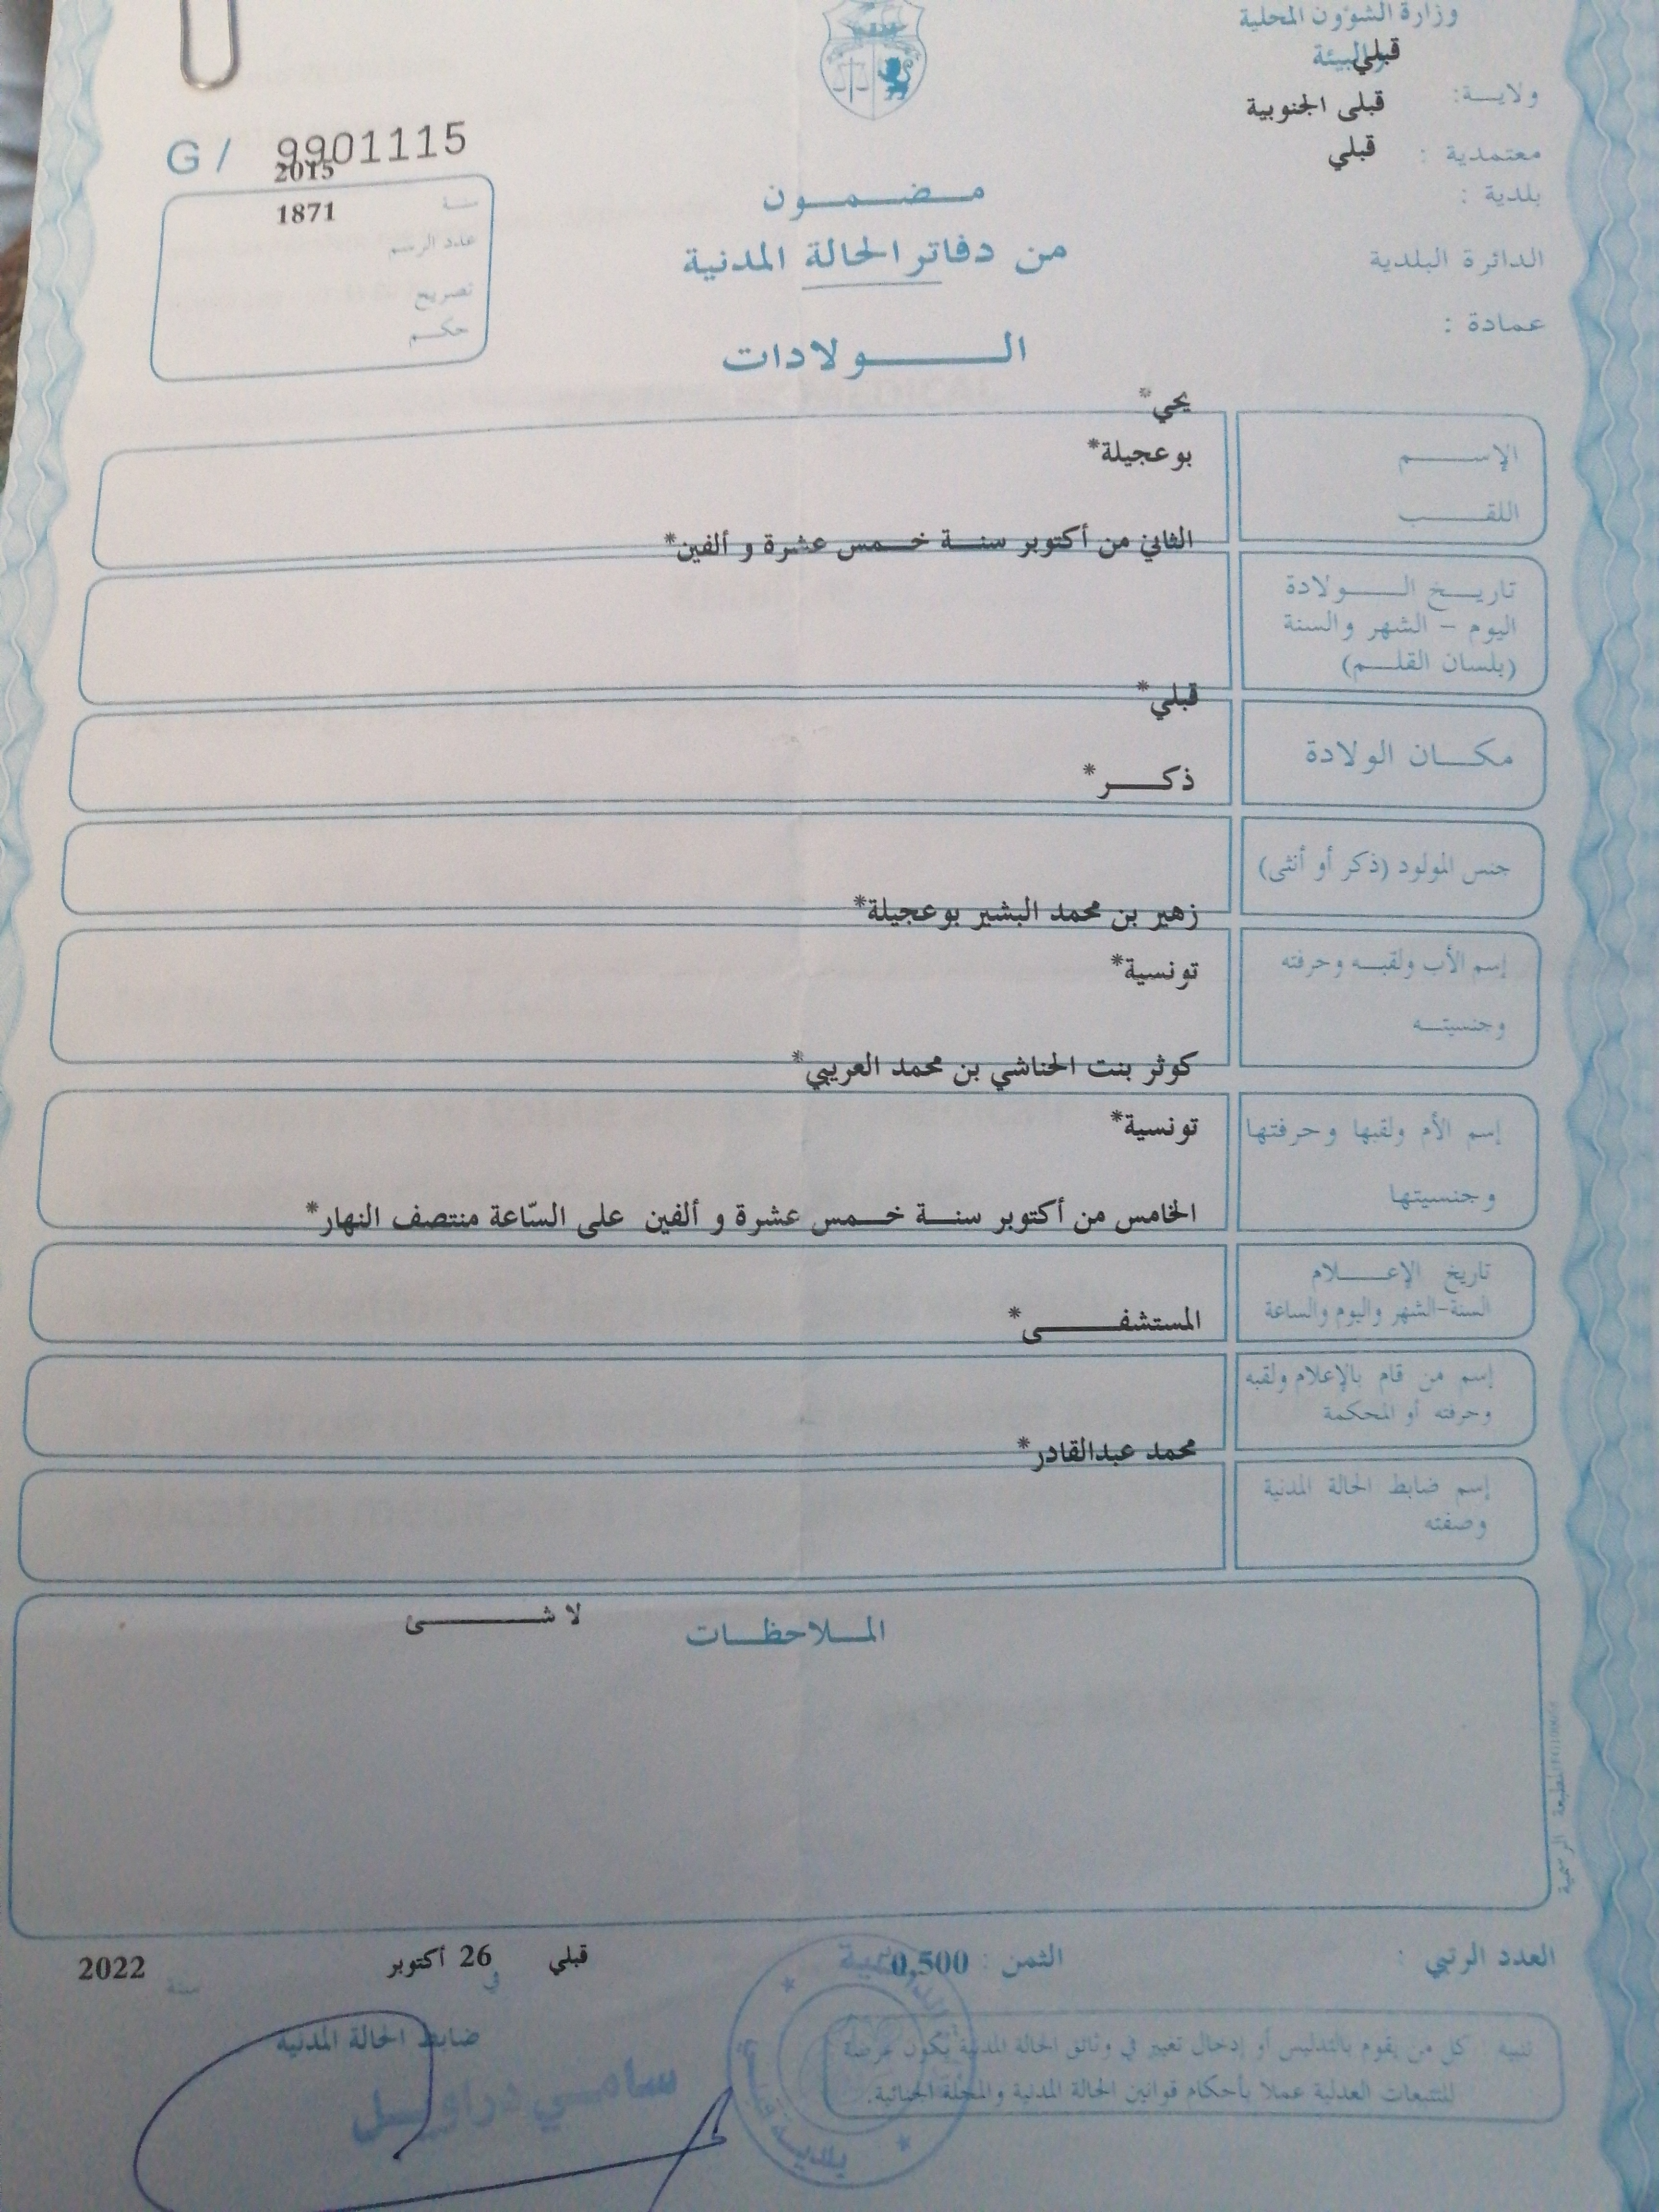 وزارة الشؤون المحلية
والبيئة
قبلي
ولايـة:
قبلى الجنوبية
معتمدية :
قبلي
بلدية :
الدائرة البلدية
عمادة :
G / 9901115
2015
سنة
1871
عدد الرسم
تصريح
حكـم
مـضـمـون
من دفاتر الحالة المدنية
الـولادات
يحي*
الإسـم
بوعجيلة*
اللقـب
الثاني من أكتوبر سنـة خـمس عشرة و ألفين*
تاريـخ الـولادة
اليوم - الشهر والسنة
(بلسان القلـم)
قبلي*
مكـان الولادة
ذكـر*
جنس المولود (ذكر أو أنثى)
زهير بن محمد البشير بوعجيلة*
إسم الأب ولقبـه وحرفته
تونسية*
وجنسيتـه
كوثر بنت الحناشي بن محمد العريبي*
إسم الأم ولقبها وحرفتها
تونسية*
وجنسيتها
الخامس من أكتوبر سنـة خـمس عشرة و ألفين على السّاعة منتصف النهار*
تاريخ الإعـلام
السنة-الشهر واليوم والساعة
المستشفـى*
إسم من قام بالإعلام ولقبه
وحرفته أو المحكمة
محمد عبدالقادر*
إسم ضابط الحالة المدنية
وصفته
الملاحظـات
لا شـئ
المطبعة الرسمية
العدد الرتبي :
الثمن : 0,500
قبلي في 26 أكتوبر سنة 2022
ضابط الحالة المدنية
تنبيه : كل من يقوم بالتدليس أو إدخال تغيير في وثائق الحالة المدنية يكون عرضة
للتتبعات العدلية عملا بأحكام قوانين الحالة المدنية والمجلة الجنائية.
سامـي دراويـل
بلديـة قبلي